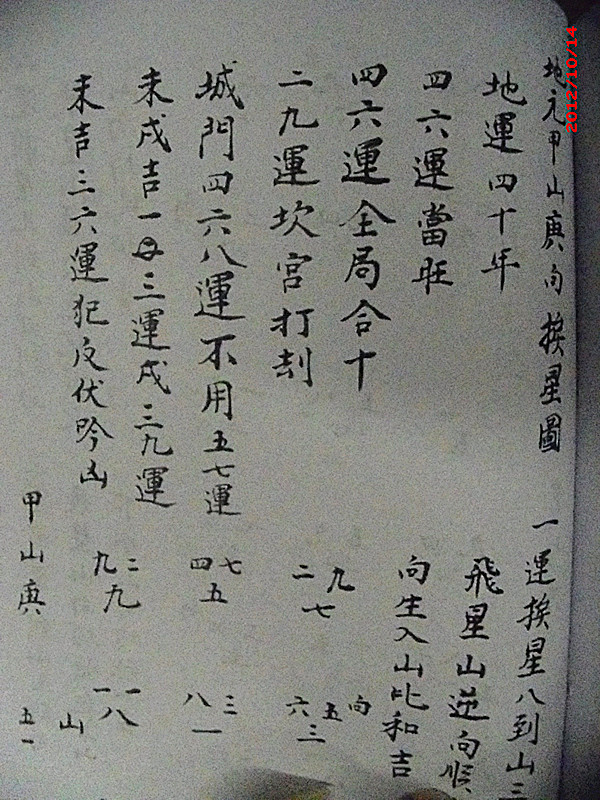 地元甲山庚向挨星圖
地運四十年
四六運當旺
四六運全局合十
二九運坎宮打刦
城門四六八運不用五七運
未戌吉一毋三運戌三九運
未吉三六運犯反伏吟凶
一運挨星八到山三
飛星山逆向順
向生入山比和吉
九 二
七
七 四
五
二 九
九
向
五 六
三
三 八
一
一 一
八
山
甲山庚
五一
2012/10/14